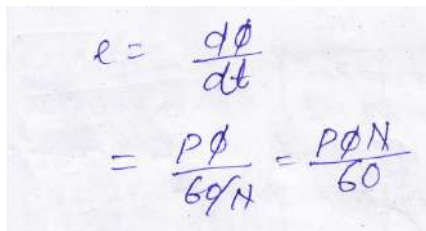 e = dφ/dt
= Pφ/60/N = PφN/60